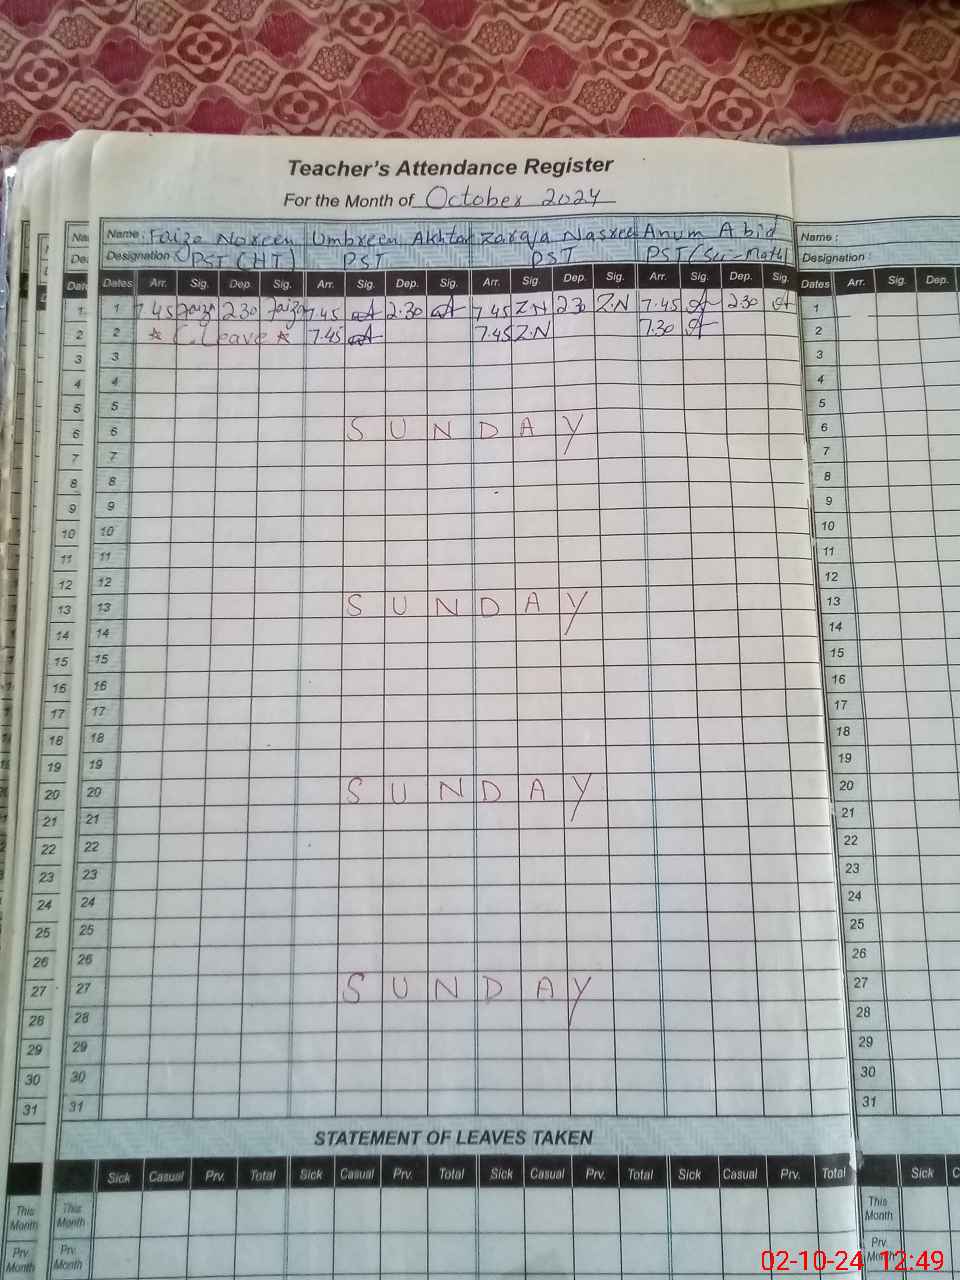 Teacher's Attendance Register
For the Month of October 2024
Name: Faiza Noreen Umbreen Akhtar Zaraja Nasreen Anum Abid Name:
Designation: PST (HT) PST PST PST (Sci-Math) Designation:
Dates Arr. Sig. Dep. Sig. Arr. Sig. Dep. Sig. Arr. Sig. Dep. Sig. Arr. Sig. Dep. Sig. Dates Arr. Sig. Dep.
1 1 7.45 Faiza 2.30 Faiza 7.45 2.30 7.45 Z.N 2.30 Z.N 7.45 2.30 1
2 2 * C. Leave * 7.45 7.45 Z.N 7.30 2
3 3 3
4 4 4
5 5 5
6 6 SUNDAY 6
7 7 7
8 8 8
9 9 9
10 10 10
11 11 11
12 12 12
13 13 SUNDAY 13
14 14 14
15 15 15
16 16 16
17 17 17
18 18 18
19 19 19
20 20 SUNDAY 20
21 21 21
22 22 22
23 23 23
24 24 24
25 25 25
26 26 26
27 27 SUNDAY 27
28 28 28
29 29 29
30 30 30
31 31 31
STATEMENT OF LEAVES TAKEN
Sick Casual Prv. Total Sick Casual Prv. Total Sick Casual Prv. Total Sick Casual Prv. Total Sick
This Month This Month This Month
Prv. Month Prv. Month Prv. Month
02-10-24 12:49